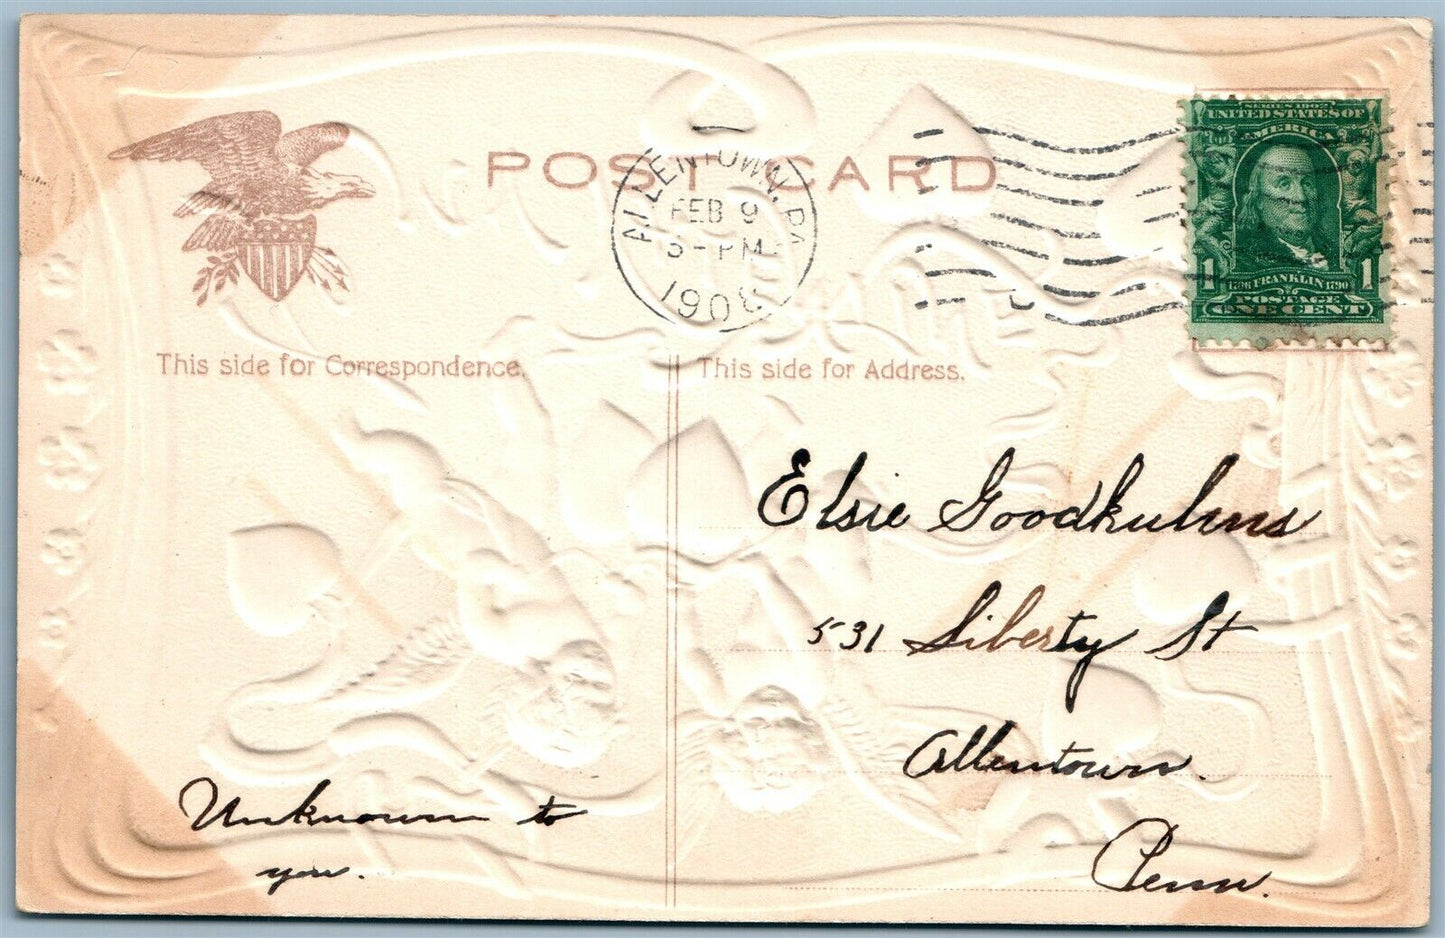 POST CARD
ALLENTOWN, PA.
FEB 9
3-PM
1908
SERIES 1902
UNITED STATES OF
AMERICA
1 1
1706 FRANKLIN 1790
POSTAGE
ONE CENT
This side for Correspondence.
This side for Address.
Elsie Goodkulens
531 Liberty St
Allentown.
Penn.
Unknown to
you.